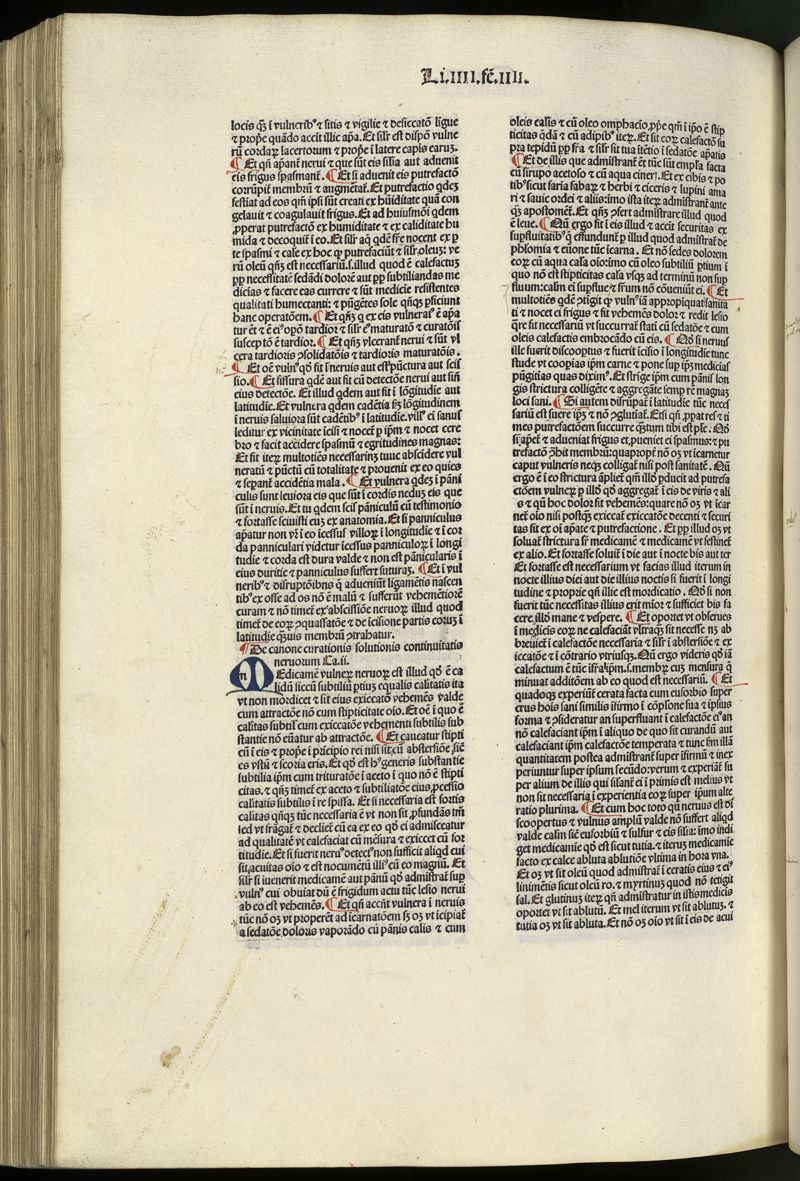 Li.IIII.fē.IIII.
locis qđ ē ī vulneribꝰ ⁊ sitis ⁊ vigilie ⁊ desiccatō ligue
⁊ ꝓpe quādo accīt illic apa. Et silr est dispō vulne
rū cordaꝝ lacertorum ⁊ ꝓpe ī latere capis earuꝫ.
¶ Et qn̄ apānt nerui ⁊ que sūt eis silia aut aduenit
eis frigus spasmant̄. ¶ Et si aduenit eis putrefactō
corrūpit̄ membrū ⁊ augmētat̄. Et putrefactio qdeꝫ
festiat ad eos qm̄ ip̄i sūt creati ex hūiditate quā con
gelauit ⁊ coagulauit frigus. Et ad huiusmōi qdem
ꝓperat putrefactō ex humiditate ⁊ ex caliditate hu
mida ⁊ decoquit ī eo. Et silr aq̄ qdē fr̄e nocent ex ꝑ
te spasmi ⁊ cale ex hoc ꝙ putrefaciūt ⁊ silr. oleuꝫ: ve
rū oleū qn̄ꝫ est necessariū.s.illud quod ē calefactuꝫ
ꝓꝑ necessitatē sedādi dolorē aut ꝓꝑ subtiliandas me
dicias ⁊ facere eas currere ⁊ sūt medicie resistentes
qualitati humectanti: ⁊ pūgētes sole qn̄qꝫ ꝑficiunt
hanc operatōem. ¶ Et qn̄ꝫ q ex eis vulnerat̄ ē apa
tur ē ⁊ ē eiꝰ opō tardior ⁊ silr eꝰ maturatō ⁊ curatōis
susceptō ē tardior. ¶ Et qn̄ꝫ vlcerant̄ nerui ⁊ sūt vl
cera tardioris ꝯsolidatōis ⁊ tardioris maturatōis.
¶ Et oē vulnꝰ qđ fit ī neruis aut est pūctura aut scis
sio. ¶ Et fissura qdē aut fit cū detectōe nerui aut sin̄
eius detectōe. Et illud qdem aut fit ī lōgitudie aut
latitudie. Et vulnera qdem cadētia fꝫ lōgitudinem
ī neruis saluiora sūt cadētibꝰ ī latitudie. villꝰ ei sanus
leditur ex vicinitate īcisi ⁊ nocet ꝑ ip̄m ⁊ nocet cere
bro ⁊ facit accidere spasmū ⁊ egritudines magnas:
Et fit iteꝝ multotiēs necessarinꝫ tunc abscidere vul
neratū ⁊ pūctū cū totalitate ⁊ prouenit ex eo quies
⁊ sepant̄ accidētia mala. ¶ Et vulnera qdeꝫ ī pāni
culis sunt leuiora eis que sūt ī cordis neduꝫ eis que
sūt ī neruis. Et tu qdem scis pāniculū cū testimonio
⁊ fortasse sciuisti euꝫ ex anatomia. Et si panniculus
apatur non vr̄ ī eo īcessuſ villoꝝ ī longitudie ⁊ ī cor
da panniculari videtur īcessus panniculoꝝ ī longi
tudie ⁊ corda est dura valde ⁊ non est pānicularis ī
eius duritie ⁊ panniculus suffert suturaꝫ. ¶ Et ī vul
neribꝰ ⁊ disruptōibꝰ q adueniūt ligamētis nascen
tibꝰ ex osse ad os nō ē malū ⁊ sufferūt vehemētiorē
curam ⁊ nō timet̄ ex abscissiōe neruoꝝ illud quod
timet̄ de eoꝝ ꝯquassatōe ⁊ de īcisione partis eoruꝫ ī
latitudie qͣuis membrū ꝯtrabatur.
¶ De canone curationis solutionis continuitatis
neruorum Ca.ii.
MEdicamē vulneꝝ neruoꝝ est illud qđ ē ca
lidū siccū subtiliū ꝑtiuꝫ equalis calitatis ita
vt non mordicet ⁊ sit eius exiccatō vehemēs valde
cum attractōe nō cum stipticitate oīo. Et oē ī quo ē
calitas subtil̄ cum exiccatōe vehementi subtilis sub
stantie nō eūatur ab attractōe. ¶ Et caueatur stipti
cū ī eis ⁊ ꝓpe ī pricipio rei nisi sit cū abstersiōe sic̄
es vstū ⁊ scoria eris. Et qđ est hꝰ generis substantie
subtilia ip̄m cum trituratōe ī aceto ī quo nō ē stipti
citas. ⁊ qn̄ꝫ timet̄ ex aceto ⁊ subtiliatōe eiusꝓcessio
calitatis subtilis ī re spissa. Et si necessaria est fortis
calitas qn̄qꝫ tūc necessaria ē vt non sit ꝓfundās tm̄
sed vt frāgat̄ ⁊ decliet̄ cū ea ex eo qđ ei admisceatur
ad qualitatē vt calefaciat cū mēsura ⁊ exiccet cū for
titudie. Et si fuerit neruꝰ detectꝰ non sufficit aliqd cui
sit acuitas oīo ⁊ est nocumētū illiꝰ cū eo magnū. Et
silr si iuuenit medicamē aut pānū qđ admīstrat̄ sup
vulnꝰ cui obuiat dū ē frigidum actu tūc lesio nerui
ab eo est vehemēs. ¶ Et qn̄ accn̄t vulnera ī neruis
tūc nō oꝫ vt properēt̄ ad īcarnatōem sꝫ oꝫ vt īcipiat̄
a sedatōe doloris vaporādo cū pānis calis ⁊ cum
oleis calis ⁊ cū oleo omphacīo, ꝓpe qm̄ ī ip̄o ē stip
ticitas qdā ⁊ cū adipibꝰ iteꝝ. Et sit coꝝ calefactō su
pra tepidū ꝓꝑ fra ⁊ silr sit tua ītētio ī sedatōe apatis
¶ Et de illis que admīstrant̄ ēt tūc sūt empla facta
cū sirupo acetoso ⁊ cū aqua cineꝝ. Et ex cibis ⁊ po
tibꝰ sicut faria fabaꝝ ⁊ herbi ⁊ ciceris ⁊ lupini ama
ri ⁊ sauic ordei ⁊ aliis: imo ista iteꝝ admīstrant̄ ante
qͣꝫ apostomēt̄. Et qn̄ꝫ ꝯfert admīstrare illud quod
ē leue. ¶ Nū ergo fit ī eis illud ⁊ accit securitas ex
supfluitatibꝰ q̄ effundunt̄ ꝑ illud quod admistrat̄ de
phlomia ⁊ eūone tūc īcarna. Et nō sedes dolorem
eoꝝ cū aqua cala oīo: imo cū oleo subtiliū ꝑtium ī
quo nō est stipticitas cala vsqꝫ ad terminū non sup
fluum: calm̄ ei supflue ⁊ fr̄um nō cōueniūt ei. ¶ Et
multotiēs qdem ꝯtigit ꝙ vulnꝰ iā appropiquat̄ sanita
ti ⁊ nocet ei frigus ⁊ fit vehemēs dolor ⁊ redit lesio
qr̄e fit necessariū vt succurrat̄ statī cū sedatōe ⁊ cum
oleis calefactis embrocādo cū eis. ¶ Nō si neruus
ille fuerit discooptus ⁊ fuerit īcisio ī longitudie tunc
stude vt coopias ip̄m carne ⁊ pone sup ip̄ꝫ medicias
pūgitias quas diximꝰ. Et strige ip̄m cum pānis lon
gis strictura colligēte ⁊ aggregāte semꝑ re magnaꝫ
loci sani. ¶ Si autem disrūpat̄ ī latitudie tūc neces
sariū est suere ip̄ꝫ ⁊ nō ꝯglutiat̄. Etsi qn̄, ꝓpat res ⁊ ti
mes putrefactōem succurre qͣntum tibi est pſe. Nō
si. apet̄ ⁊ adueniat frigus et, pueniet ei spasmus: ⁊ pu
trefactō ꝓhibit membrū: quapropt̄ nō oꝫ vt īcarnetur
caput vulneris neqꝫ colligat̄ nisi post sanitatē. Nū
ergo ē ī eo strictura āpliet̄ qm̄ illđ ꝓducit ad putrefa
ctōem vulneꝝ ꝑ illđ qđ aggregat̄ ī eis de viris ⁊ ali
s ⁊ qū hoc dolor fit vehemēs: quare nō oꝫ vt īcar
net̄ oīo nisi postqͣꝫ exiccat̄ exiccatōe decenti ⁊ securi
tas sit ex oi apate ⁊ putrefactione. Et ꝓꝑ illud oꝫ vt
soluat̄ strictura sr̄ medicamē ⁊ medicamē vt festinet̄
ex alio. Et fortasse soluit̄ ī die aut ī nocte bis aut ter
Et fortasse est necessarium vt facias illud iterum in
nocte illius diei aut die illius noctis si fuerit ī longi
tudine ⁊ proprie qn̄ illic est mordicatio. Nō si non
fuerit tūc necessitas illius erit mior ⁊ sufficiet bis fa
cere. illđ mane ⁊ vespere. ¶ Et oportet vt obserues
ī medicis eoꝝ ne calefaciant vltraqͣꝫ sit necesse nꝫ ab
breuiet̄ ī calefactōe necessaria ⁊ silr ī abstersiōe ⁊ ex
iccatōe ⁊ ī cōtrario vtriusqꝫ. Nū ergo videris qđ iā
calefactum ē tūc īfra ip̄m.s.membrꝝ cuꝫ mensura q̄
minuat additōem ab eo quod est necessariū. ¶ Et
quadoqꝫ experiūt̄ cerata facta cum euforbio super
crus hois sani similis ifirmo ī cōplsōne sua ⁊ ipsius
forma ⁊ ꝯsiderat̄ an superfluant ī calefactōe eiꝰ an
nō calefaciant ip̄m ī aliquo de quo sit curandū aut
calefaciant ip̄m calefactōe temperata ⁊ tunc ꝑm illā
quantitatem postea admīstrant̄ super īfirmū ⁊ inex
periuntur super ipsum secūdo: verum ⁊ experiāt̄ su
per alium de illis qui silant̄ ei ī primis est melius vt
non sit necessaria ī experientia eoꝝ super ip̄um alte
ratio plurima. ¶ Et cum hoc toto qn̄ neruus est di
scoopertus ⁊ vulnus amplū valde nō suffert aliqd
valde calm̄ sic̄ eusorbiū ⁊ sulfur ⁊ eis silia: imo indi
get medicamie qđ est sicut tutia. ⁊ iteruꝫ medicamie
facto ex calce abluta ablutiōe vltima in hora vna.
Et oꝫ vt sit oleū quod admīstrat̄ ī ceratis eius ⁊ eiꝰ
linimētis sicut oleū ro. ⁊ myrtinuꝫ quod nō tetigit
sal. Et glutinuꝫ iteꝝ qn̄ admistratur in istis medicis
oportet vt sit ablutū. Et mel iterum vt sit ablutuꝫ. ⁊
tutia oꝫ vt sit abluta. Et nō oꝫ oīo vt sit ī eis de acui